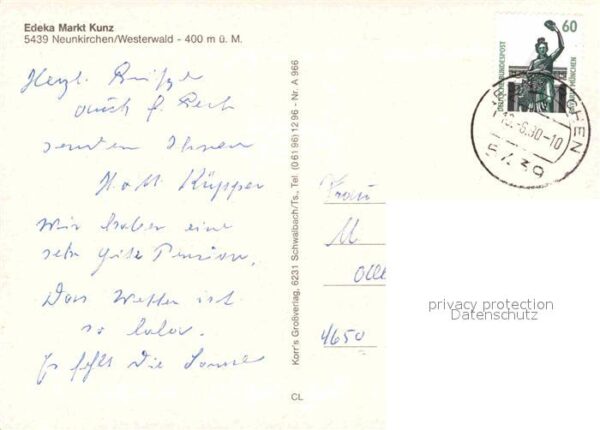 Edeka Markt Kunz
5439 Neunkirchen/Westerwald - 400 m ü. M.
Herzl. Grüße
auch f. Rest
senden Ihnen
H. u. M. Küpper
Wir haben eine
sehr gute Pension.
Das Wetter ist
so lala.
Es fehlt die Sonne
Korr's Großverlag, 6231 Schwalbach/Ts., Tel. (0 61 96) 12 96 - Nr. A 966
CL
60
DEUTSCHE BUNDESPOST
MÜNCHEN
CHEN
.6.90-10
5439
Frau
4650
privacy protection
Datenschutz